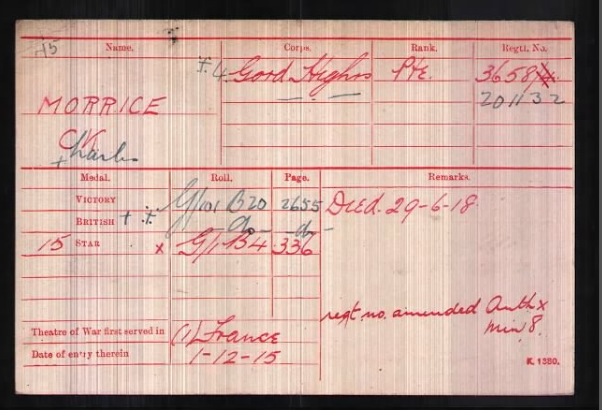 15 Name. Corps. Rank. Regtl. No.
4. Gord Highrs Pte. 3658
201132
MORRICE
C
Charles
Medal. Roll. Page. Remarks.
VICTORY G/101 B20 2655 Died. 29-6-18.
BRITISH do do
15 STAR x G/1 B4 336
regt. no. amended Auth x
Min 8.
Theatre of War first served in (1) France
Date of entry therein 1-12-15
K. 1380.